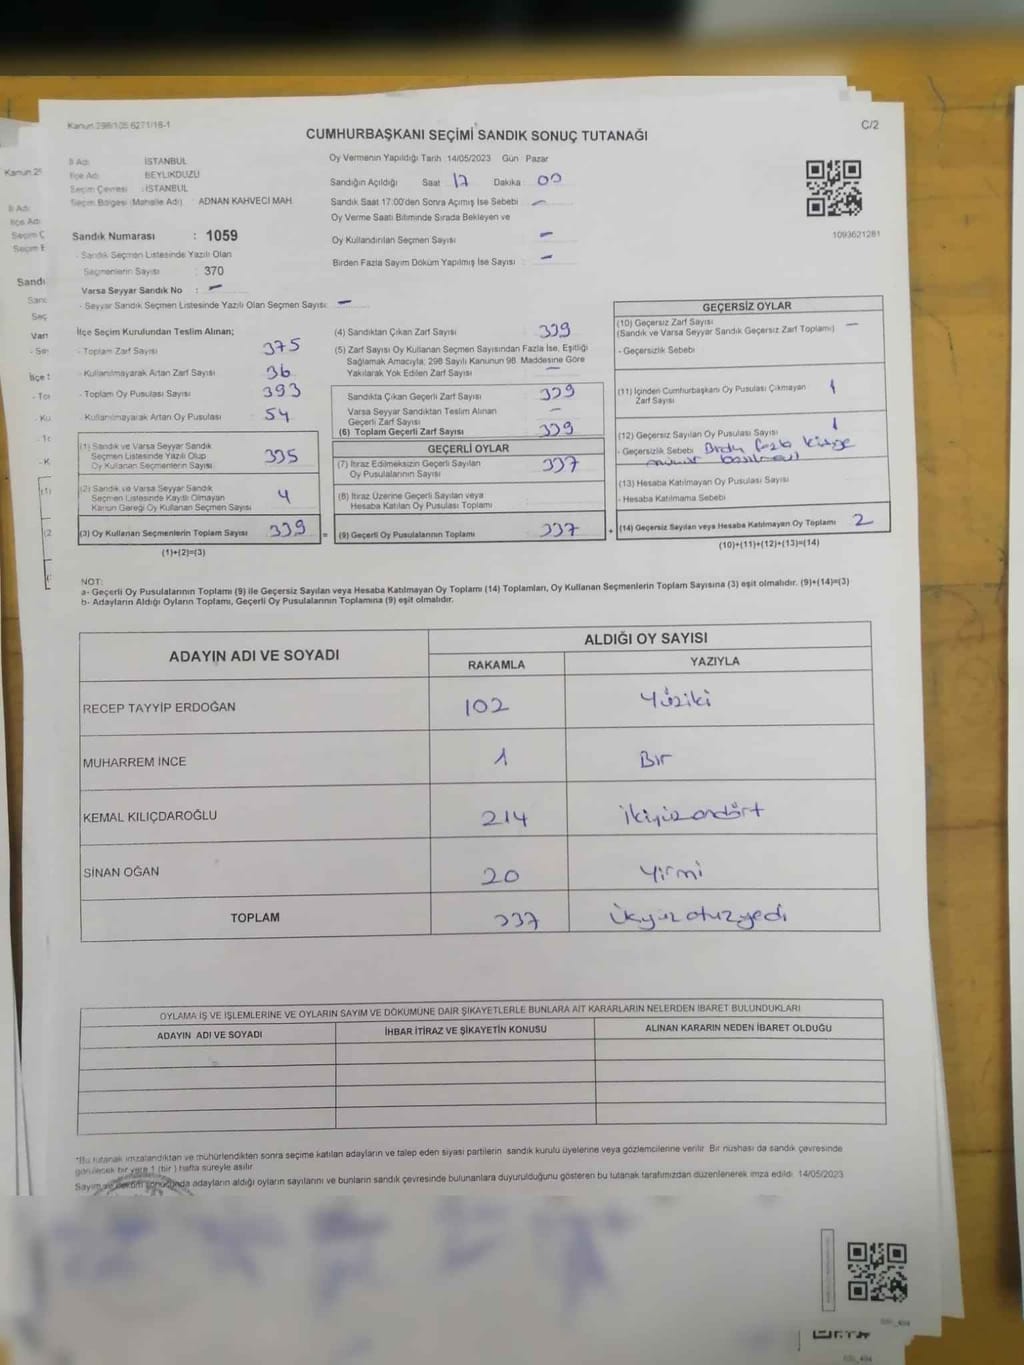 Kanun 298/105 6271/18-1
C/2
CUMHURBAŞKANI SEÇİMİ SANDIK SONUÇ TUTANAĞI
İl Adı : İSTANBUL
İlçe Adı : BEYLİKDÜZÜ
Seçim Çevresi : İSTANBUL
Seçim Bölgesi (Mahalle Adı) ADNAN KAHVECİ MAH.
Sandık Numarası : 1059
- Sandık Seçmen Listesinde Yazılı Olan
Seçmenlerin Sayısı : 370
Varsa Seyyar Sandık No : -
- Seyyar Sandık Seçmen Listesinde Yazılı Olan Seçmen Sayısı: -
Oy Vermenin Yapıldığı Tarih :14/05/2023 Gün Pazar
Sandığın Açıldığı Saat 17 Dakika 00
Sandık Saat 17:00'den Sonra Açımış İse Sebebi -
Oy Verme Saati Bitiminde Sırada Bekleyen ve
Oy Kullandırılan Seçmen Sayısı -
Birden Fazla Sayım Döküm Yapılmış İse Sayısı -
1093621281
İlçe Seçim Kurulundan Teslim Alınan;
- Toplam Zarf Sayısı 375
- Kullanılmayarak Artan Zarf Sayısı 36
- Toplam Oy Pusulası Sayısı 393
- Kullanılmayarak Artan Oy Pusulası 54
(1) Sandık ve Varsa Seyyar Sandık
Seçmen Listesinde Yazılı Olup
Oy Kullanan Seçmenlerin Sayısı 335
(2) Sandık ve Varsa Seyyar Sandık
Seçmen Listesinde Kayıtlı Olmayan
Kanun Gereği Oy Kullanan Seçmen Sayısı 4
(3) Oy Kullanan Seçmenlerin Toplam Sayısı 339 =
(1)+(2)=(3)
(4) Sandıktan Çıkan Zarf Sayısı 339
(5) Zarf Sayısı Oy Kullanan Seçmen Sayısından Fazla İse, Eşitliği
Sağlamak Amacıyla; 298 Sayılı Kanunun 98. Maddesine Göre
Yakılarak Yok Edilen Zarf Sayısı -
Sandıkta Çıkan Geçerli Zarf Sayısı 339
Varsa Seyyar Sandıktan Teslim Alınan
Geçerli Zarf Sayısı -
(6) Toplam Geçerli Zarf Sayısı 339
GEÇERLİ OYLAR
(7) İtiraz Edilmeksizin Geçerli Sayılan
Oy Pusulalarının Sayısı 337
(8) İtiraz Üzerine Geçerli Sayılan veya
Hesaba Katılan Oy Pusulası Toplamı
(9) Geçerli Oy Pusulalarının Toplamı 337 +
GEÇERSİZ OYLAR
(10) Geçersiz Zarf Sayısı -
(Sandık ve Varsa Seyyar Sandık Geçersiz Zarf Toplamı)
- Geçersizlik Sebebi
(11) İçinden Cumhurbaşkanı Oy Pusulası Çıkmayan
Zarf Sayısı 1
(12) Geçersiz Sayılan Oy Pusulası Sayısı 1
- Geçersizlik Sebebi Birden fazla kişiye
mühür basılması
(13) Hesaba Katılmayan Oy Pusulası Sayısı
- Hesaba Katılmama Sebebi
(14) Geçersiz Sayılan veya Hesaba Katılmayan Oy Toplamı 2
(10)+(11)+(12)+(13)=(14)
NOT:
a- Geçerli Oy Pusulalarının Toplamı (9) ile Geçersiz Sayılan veya Hesaba Katılmayan Oy Toplamı (14) Toplamları, Oy Kullanan Seçmenlerin Toplam Sayısına (3) eşit olmalıdır. (9)+(14)=(3)
b- Adayların Aldığı Oyların Toplamı, Geçerli Oy Pusulalarının Toplamına (9) eşit olmalıdır.
ADAYIN ADI VE SOYADI
ALDIĞI OY SAYISI
RAKAMLA YAZIYLA
RECEP TAYYİP ERDOĞAN 102 Yüziki
MUHARREM İNCE 1 Bir
KEMAL KILIÇDAROĞLU 214 ikiyüzondört
SİNAN OĞAN 20 Yirmi
TOPLAM 337 Üçyüzotuzyedi
OYLAMA İŞ VE İŞLEMLERİNE VE OYLARIN SAYIM VE DÖKÜMÜNE DAİR ŞİKAYETLERLE BUNLARA AİT KARARLARIN NELERDEN İBARET BULUNDUKLARI
ADAYIN ADI VE SOYADI İHBAR İTİRAZ VE ŞİKAYETİN KONUSU ALINAN KARARIN NEDEN İBARET OLDUĞU
*Bu tutanak imzalandıktan ve mühürlendikten sonra seçime katılan adayların ve talep eden siyasi partilerin sandık kurulu üyelerine veya gözlemcilerine verilir. Bir nüshası da sandık çevresinde
görülecek bir yere 1 (bir ) hafta süreyle asılır.
Sayım ve döküm sonucunda adayların aldığı oyların sayılarını ve bunların sandık çevresinde bulunanlara duyurulduğunu gösteren bu tutanak tarafımızdan düzenlenerek imza edildi. 14/05/2023